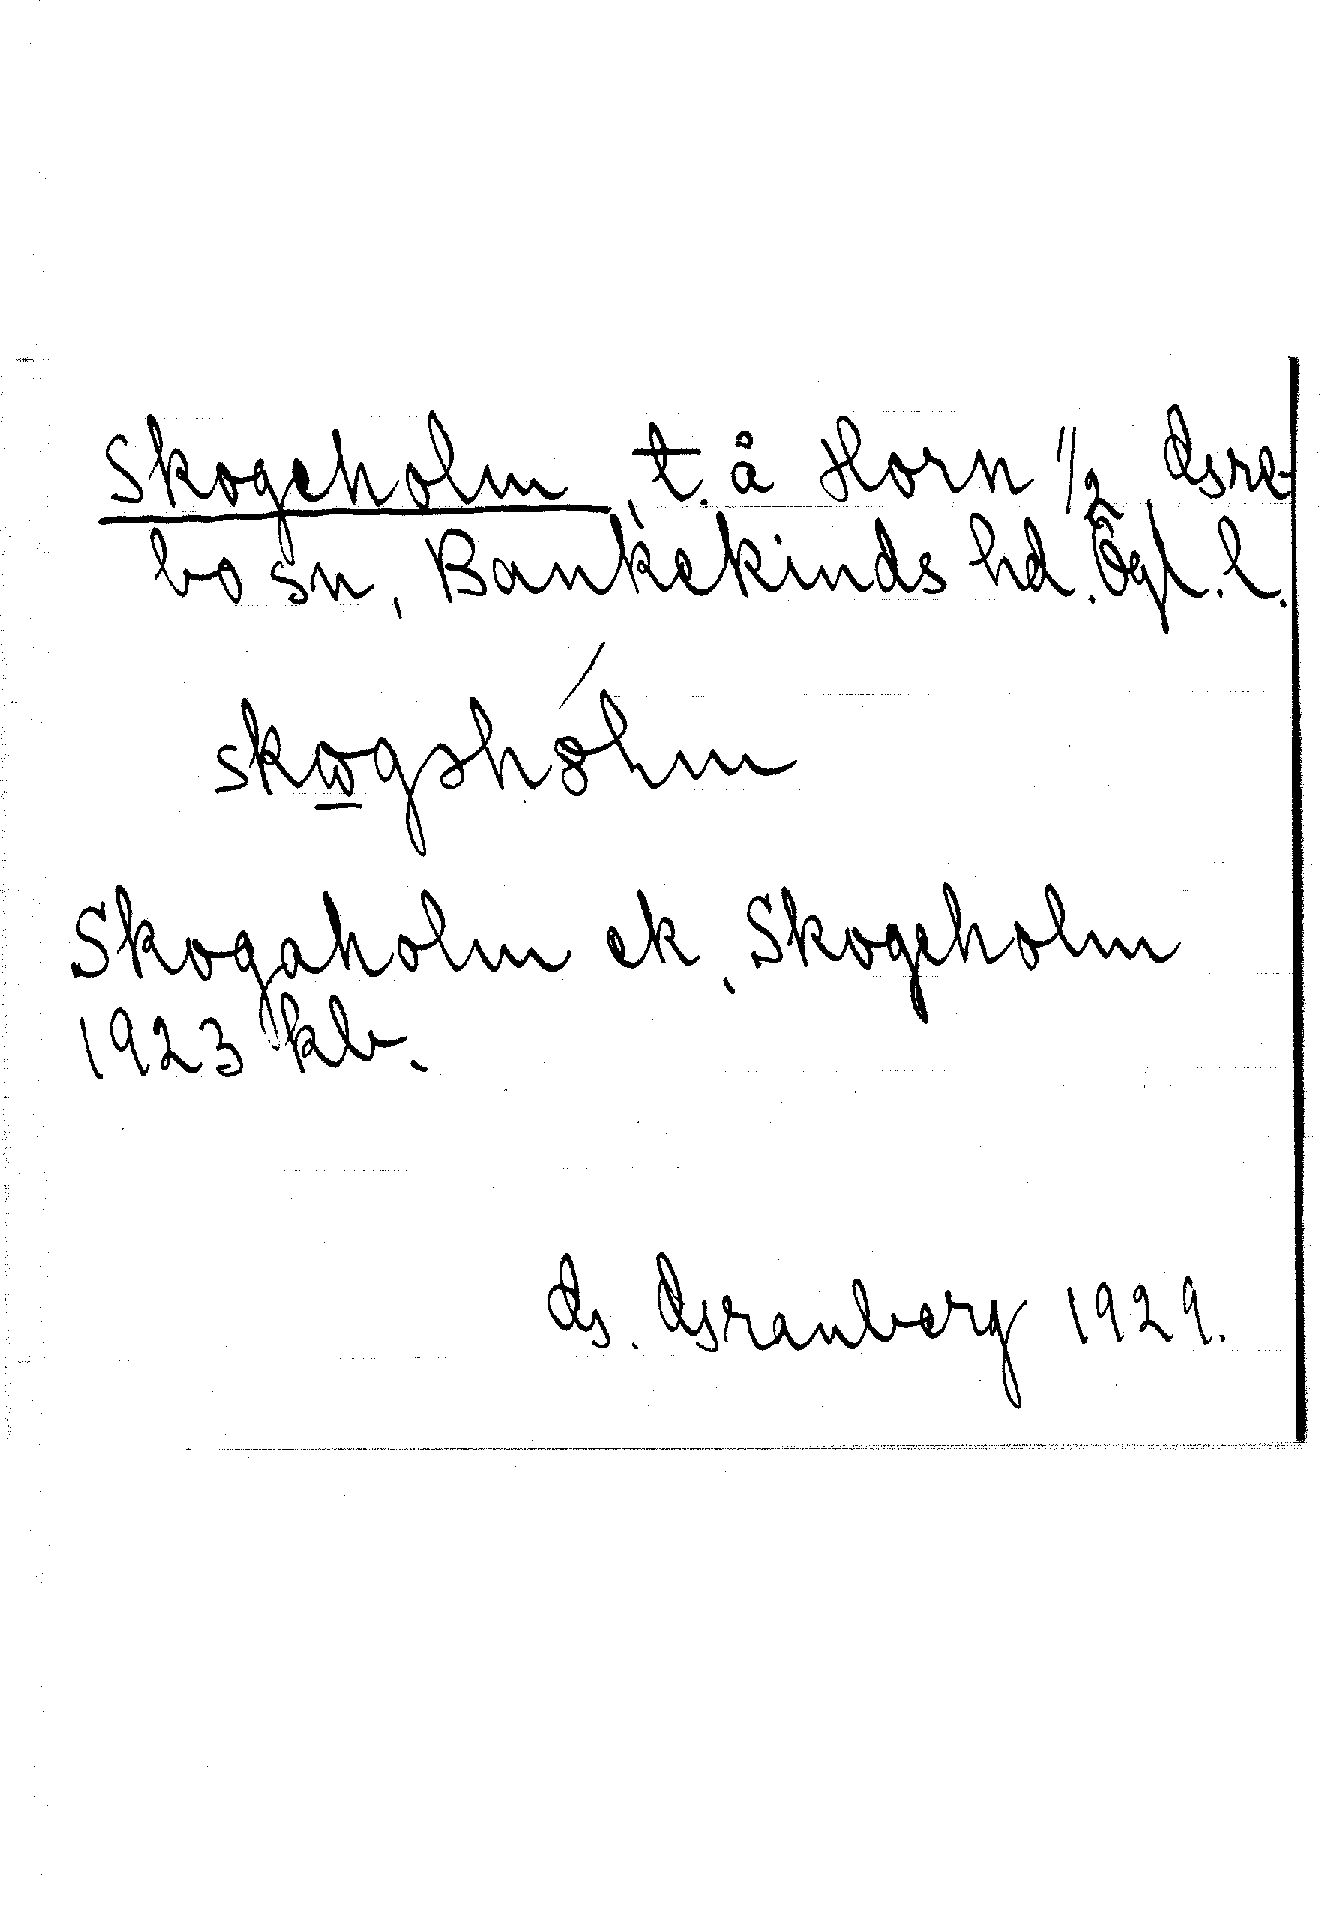 Skogeholm, t. å Horn 1/2 Gre-
bo sn, Bankekinds hd. Ögl. l.
Skogaholm ek, Skogeholm
1923 kb.
G. Granberg 1929.